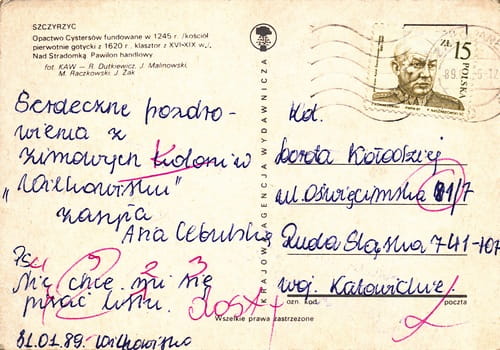 SZCZYRZYC
Opactwo Cystersów fundowane w 1245 r. /kościół
pierwotnie gotycki z 1620 r., klasztor z XVI-XIX w./.
Nad Stradomką. Pawilon handlowy
fot. KAW — R. Dutkiewicz, J. Malinowski,
M. Raczkowski, J. Żak
Serdeczne pozdro-
wienia z
zimowych kolonii w
"Wilkowisku"
Ania
Ps.
Nie chce mi się
pisać listu.
31.01.89. Wilkowisko
1 2 3
dost
KRAJOWA AGENCJA WYDAWNICZA
ZŁ 15
POLSKA
89
Dorota Kołodziej
ul. Oświęcimska 81/7
Ruda Śląska 741-107
woj. Katowickie.
ozn. kod. poczta
Wszelkie prawa zastrzeżone